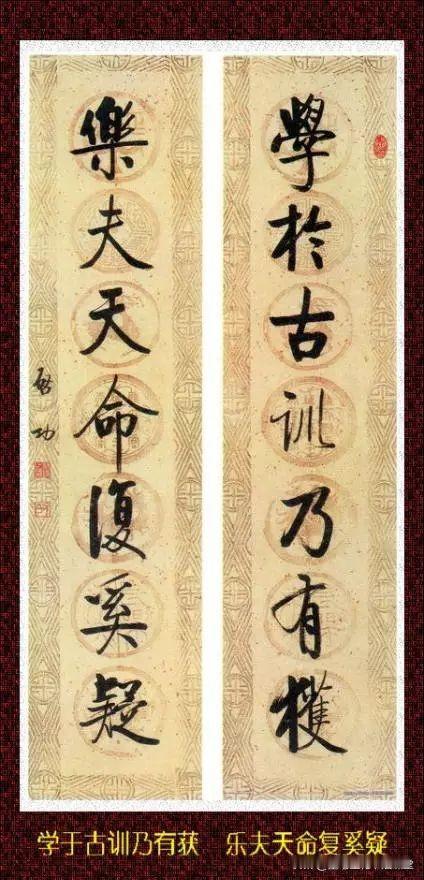 學於古訓乃有獲
樂夫天命復奚疑
啟功
学于古训乃有获 乐夫天命复奚疑